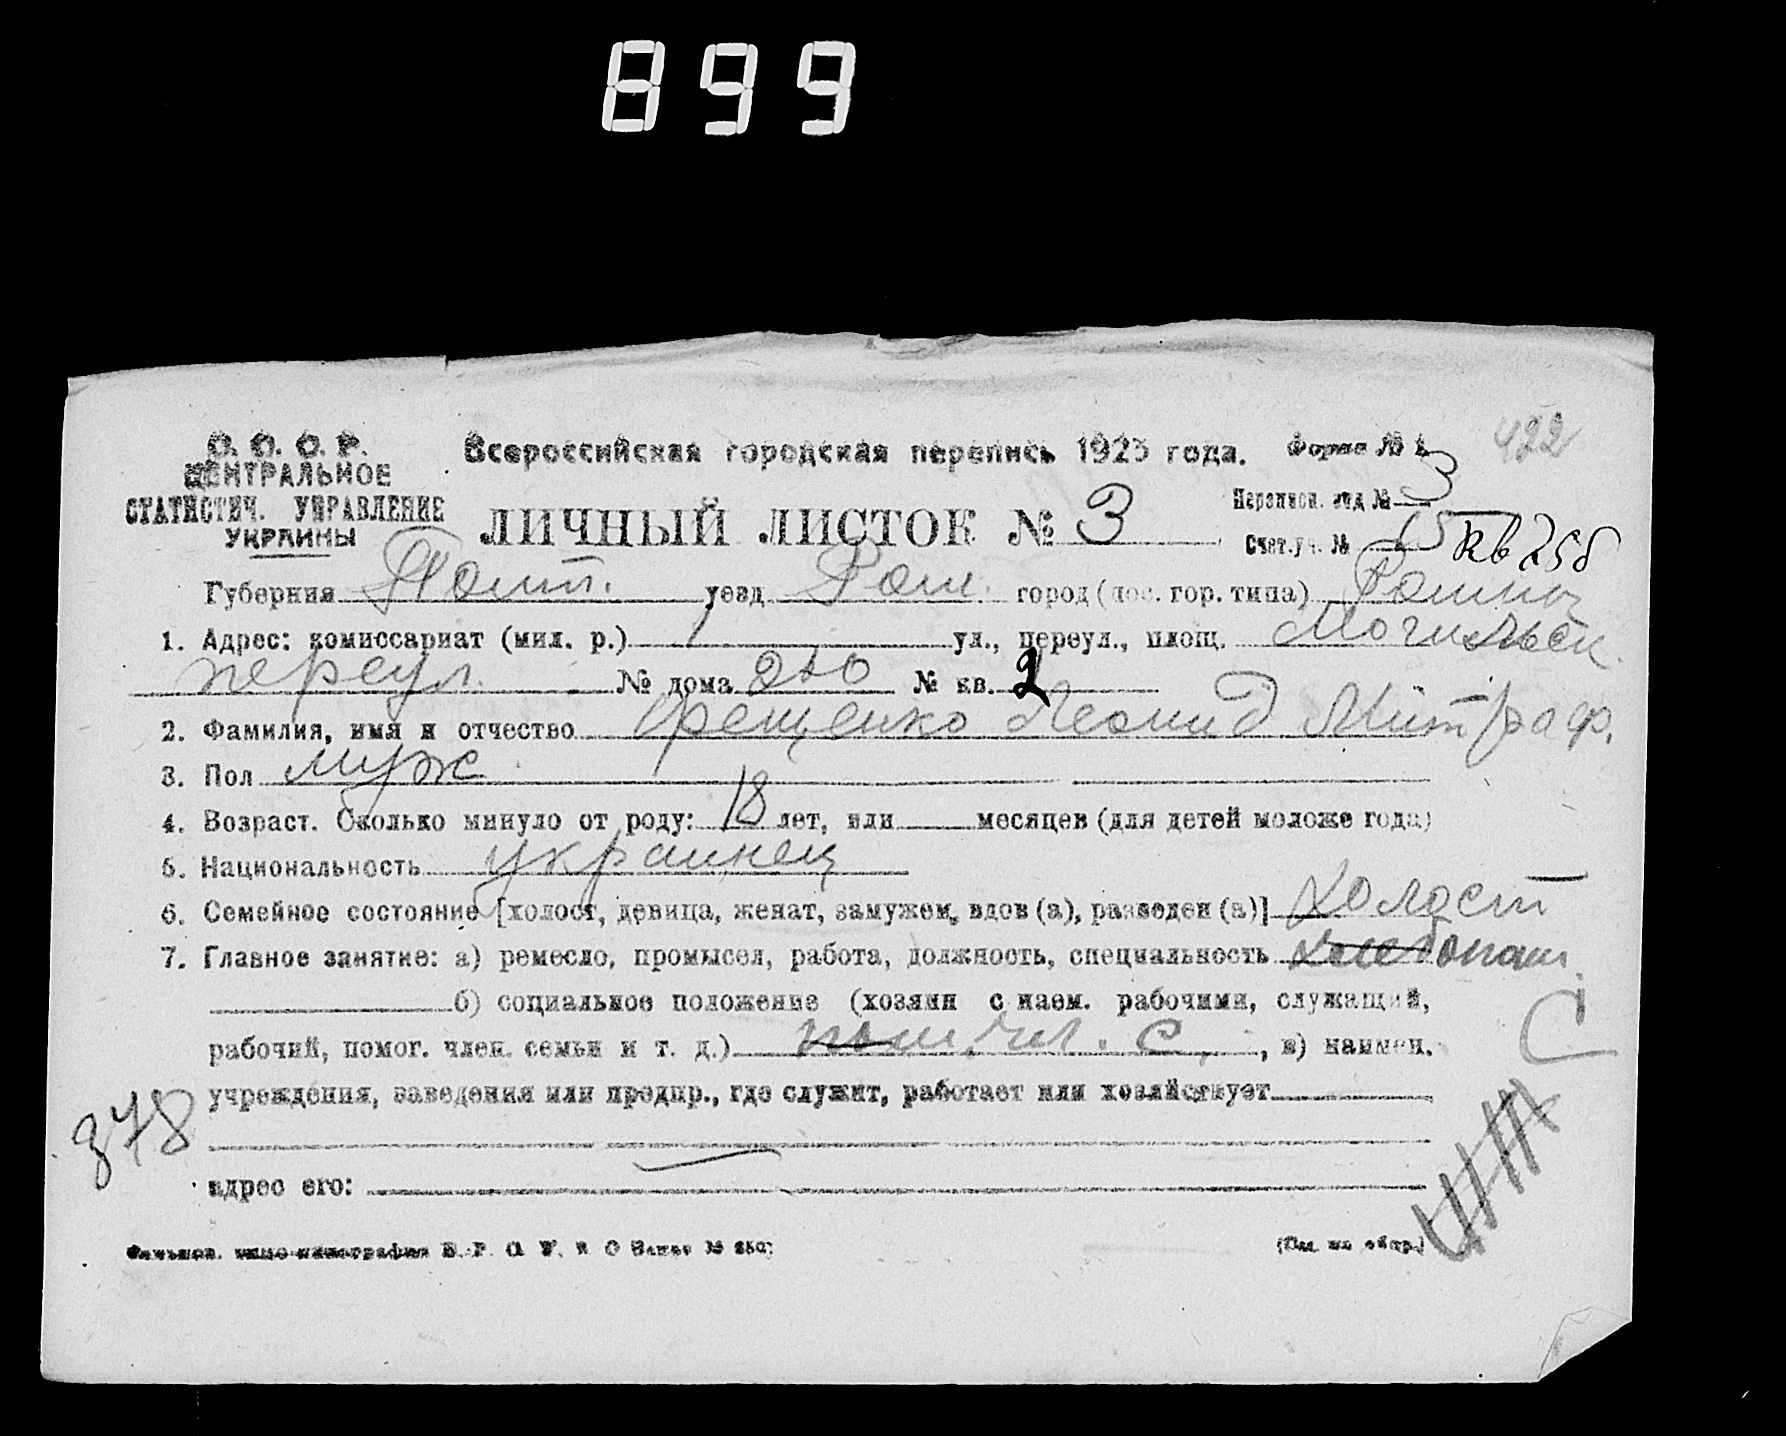 899
С. С. С. Р.
ЦЕНТРАЛЬНОЕ
СТАТИСТИЧ. УПРАВЛЕНИЕ
УКРАИНЫ
Всероссийская городская перепись 1923 года.
Форма № 1.
422
ЛИЧНЫЙ ЛИСТОК № 3
Переписн. отд № 3
Счет.уч. № 15 кв 258
Губерния Полт. уезд Ром. город (пос. гор. типа) Ромны
1. Адрес: комиссариат (мил. р.) 1 ул., переул., площ. Могильск.
переул. № дома № кв. 2
2. Фамилия, имя и отчество Орещенко Леонид Митроф.
3. Пол муж
4. Возраст. Сколько минуло от роду: 18 лет, или месяцев (для детей моложе года)
5. Национальность украинец
6. Семейное состояние [холост, девица, женат, замужем, вдов (а), разведен (а)] холост
7. Главное занятие: а) ремесло, промысел, работа, должность, специальность хлебопаш.
б) социальное положение (хозяин с наем. рабочими, служащий,
рабочий, помог. член. семьи и т. д.) пом. чл. с., в) наимен.
С
учреждения, заведения или предпр., где служит, работает или хозяйствует
378
адрес его:
(См. на обор.)